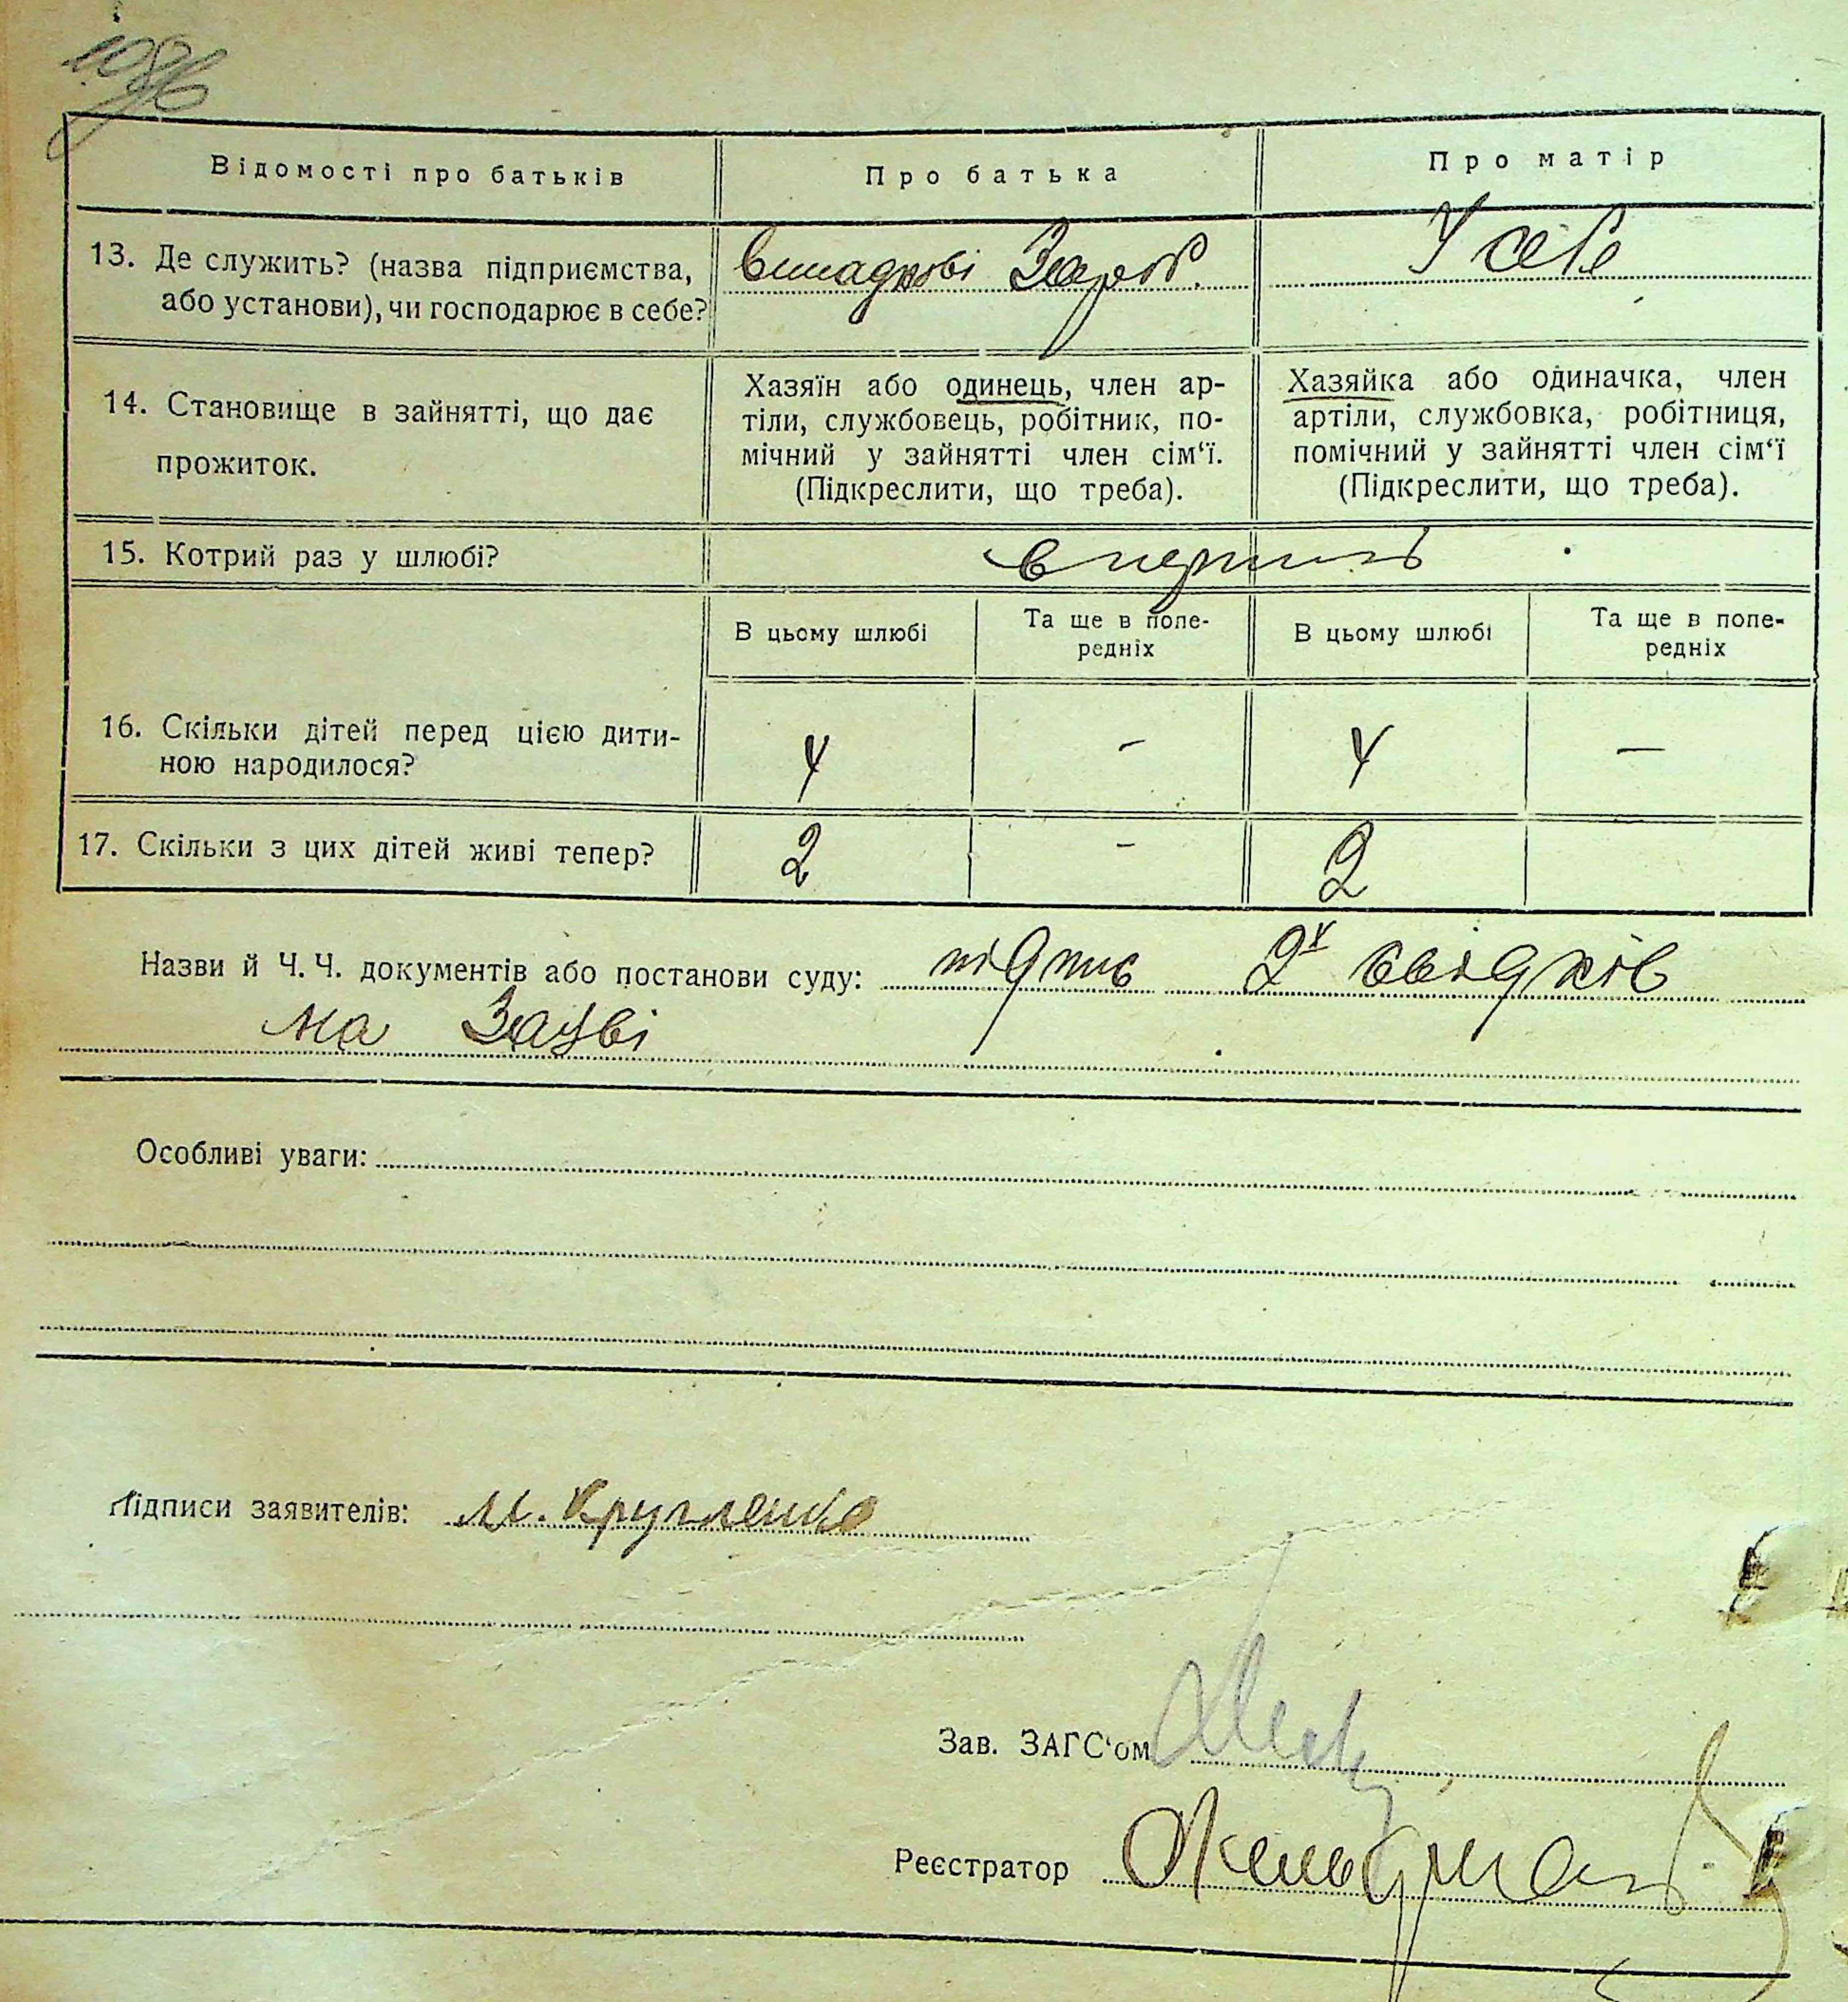 Відомості про батьків
Про батька
Про матір
13. Де служить? (назва підприємства,
або установи), чи господарює в себе?
Випадкові Зароб.
У себе
14. Становище в зайнятті, що дає
прожиток.
Хазяїн або одинець, член ар-
тіли, службовець, робітник, по-
мічний у зайнятті член сім‘ї.
(Підкреслити, що треба).
Хазяйка або одиначка, член
артіли, службовка, робітниця,
помічний у зайнятті член сім‘ї
(Підкреслити, що треба).
15. Котрий раз у шлюбі?
В цьому шлюбі
Та ще в попе-
редніх
В цьому шлюбі
Та ще в попе-
редніх
16. Скільки дітей перед цією дити-
ною народилося?
4 - 4 —
17. Скільки з цих дітей живі тепер?
2 - 2
Назви й Ч. Ч. документів або постанови суду: підпис 2х свідків
на Заяві
Особливі уваги:
Підписи заявителів: М. Кругленко
Зав. ЗАГС‘ом
Реєстратор